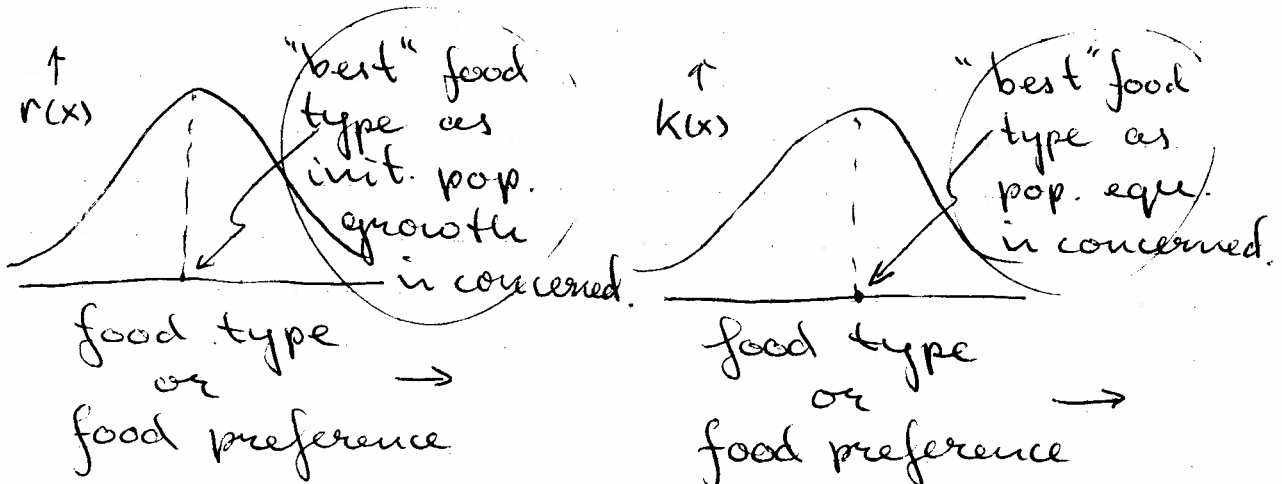 ↑
r(x)
"best" food
type as
init. pop.
growth
is concerned.
food type
or →
food preference
↑
k(x)
"best" food
type as
pop. equ.
is concerned.
food type
or →
food preference